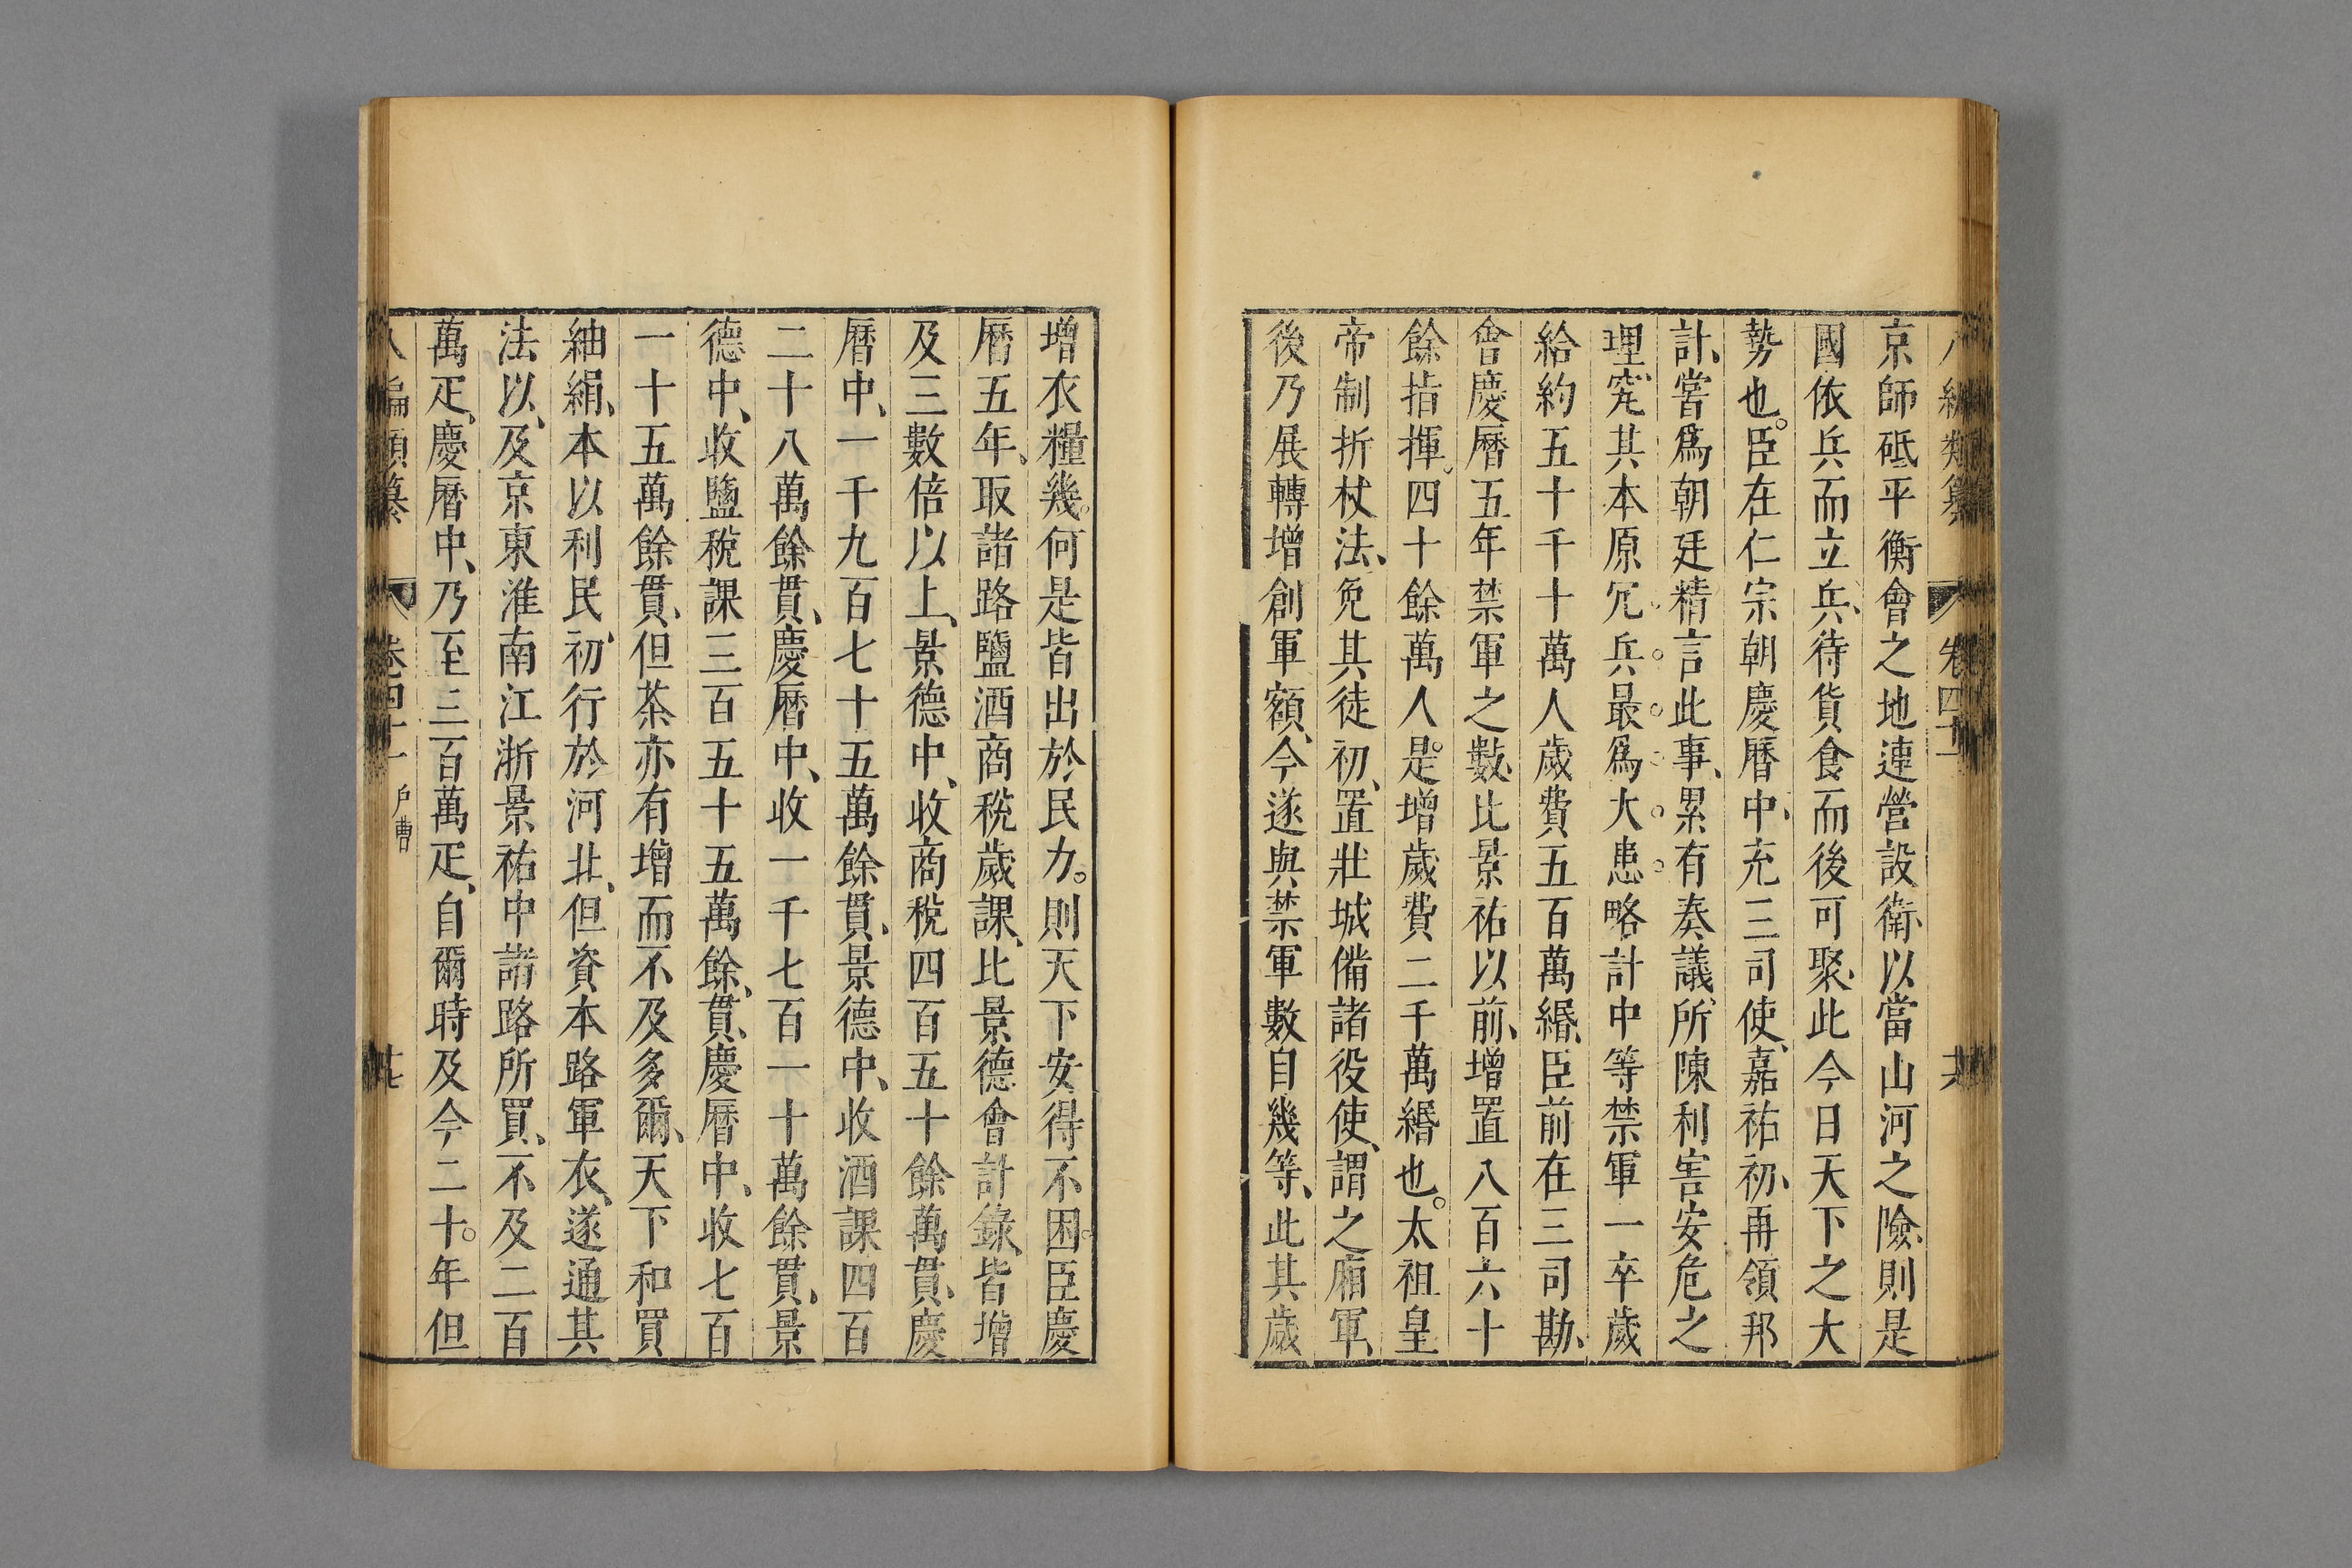 八編類纂 卷四十一 十六
京師砥平衡會之地連營設衛以當山河之險則是
國依兵而立兵、待貨食而後可聚、此今日天下之大
勢也。臣在仁宗朝慶曆中、充三司使、嘉祐初、再領邦
計、嘗爲朝廷精言此事、累有奏議、所陳利害安危之
理究其本原冗兵最爲大患略計中等禁軍一卒歲
給約五十千十萬人歲費五百萬緡、臣前在三司勘、
會慶曆五年禁軍之數、比景祐以前、增置八百六十
餘指揮。四十餘萬人。是增歲費二千萬緡也。太祖皇
帝制折杖法、免其徒初、置壯城備諸役使、謂之廂軍、
後乃展轉增創軍額、今遂與禁軍數自幾等、此其歲
增衣糧幾。何是皆出於民力。則天下安得不困。臣慶
曆五年、取諸路鹽酒商稅歲課、比景德會計錄、皆增
及三數倍以上、景德中、收商稅四百五十餘萬貫、慶
曆中、一千九百七十五萬餘貫、景德中、收酒課四百
二十八萬餘貫、慶曆中、收一千七百一十萬餘貫、景
德中、收鹽稅課三百五十五萬餘、貫、慶曆中、收七百
一十五萬餘貫、但茶亦有增而不及多爾、天下和買
紬絹、本以利民、初行於河北、但資本路軍衣、遂通其
法以、及京東淮南江浙景祐中諸路所買、不及二百
萬疋、慶曆中、乃至三百萬疋、自爾時及今二十。年但
八編類纂 卷四十一 戶曹 十七